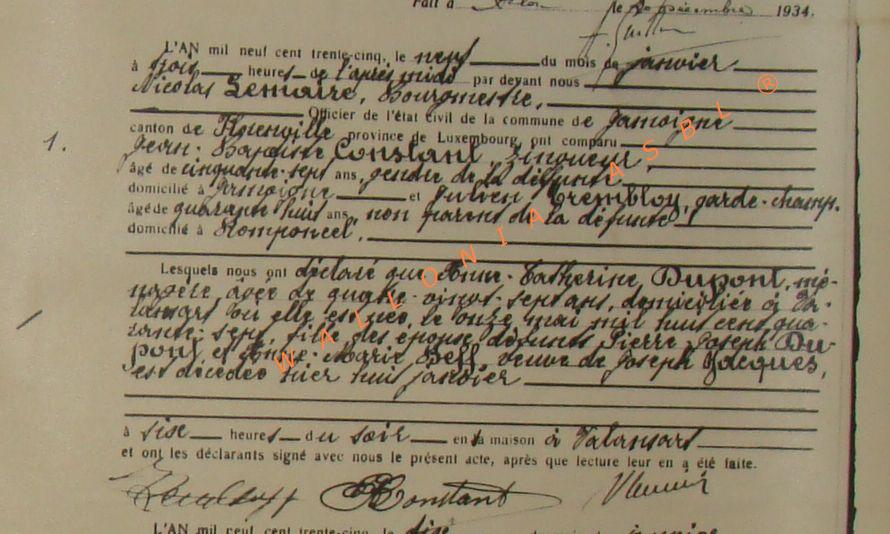 Fait à Arlon le 20 Décembre 1934.
L'AN mil neuf cent trente-cinq, le neuf du mois de janvier
à trois heures de l'après midi par devant nous
Nicolas Lemaire, Bourgmestre,
Officier de l'état civil de la commune de Jamoigne
canton de Florenville province de Luxembourg, ont comparu
Jean-Baptiste Constant, zingueur
âgé de cinquante-sept ans, gendre de la défunte
domicilié à Jamoigne et Julien Trembloy, garde-champ.
âgé de quarante huit ans, non parent de la défunte
domicilié à Romponcel,
1.
Lesquels nous ont déclaré que Anne-Catherine Dupont, mé-
nagère, âgée de quatre-vingt-sept ans, domiciliée à Va-
lansart où elle est née, le onze mai mil huit cent qua-
rante-sept, fille des époux défunts Pierre Joseph Du-
pont et Anne-Marie Jeff, veuve de Joseph Jacques,
est décédée hier huit janvier
à six heures du soir en sa maison à Valansart
et ont les déclarants signé avec nous le présent acte, après que lecture leur en a été faite.
Constant
L'AN mil neuf cent trente-cinq, le
WALLONIA ASBL ®